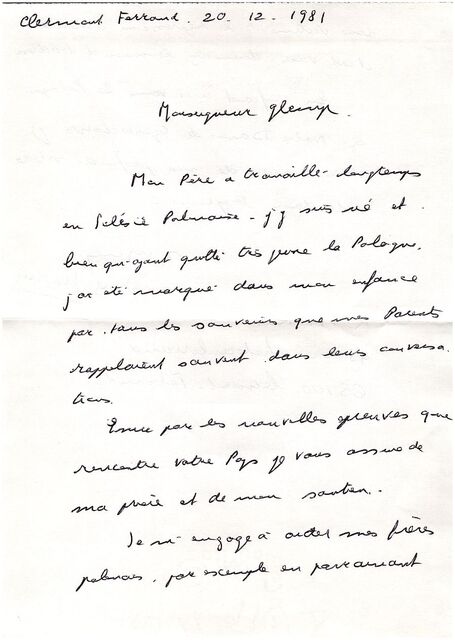 Clermont Ferrand. 20. 12. 1981
Monseigneur Glemp.
Mon Père a travaillé longtemps
en Silésie Polonaise - j'y suis né et
bien qu'ayant quitté très jeune la Pologne,
j'ai été marqué dans mon enfance
par tous les souvenirs que mes Parents
rappelaient souvent dans leurs conversa
tions.
Emu par les nouvelles épreuves que
rencontre votre Pays je vous assure de
ma prière et de mon soutien.
Je m'engage à aider mes frères
polonais, par exemple en parrainant